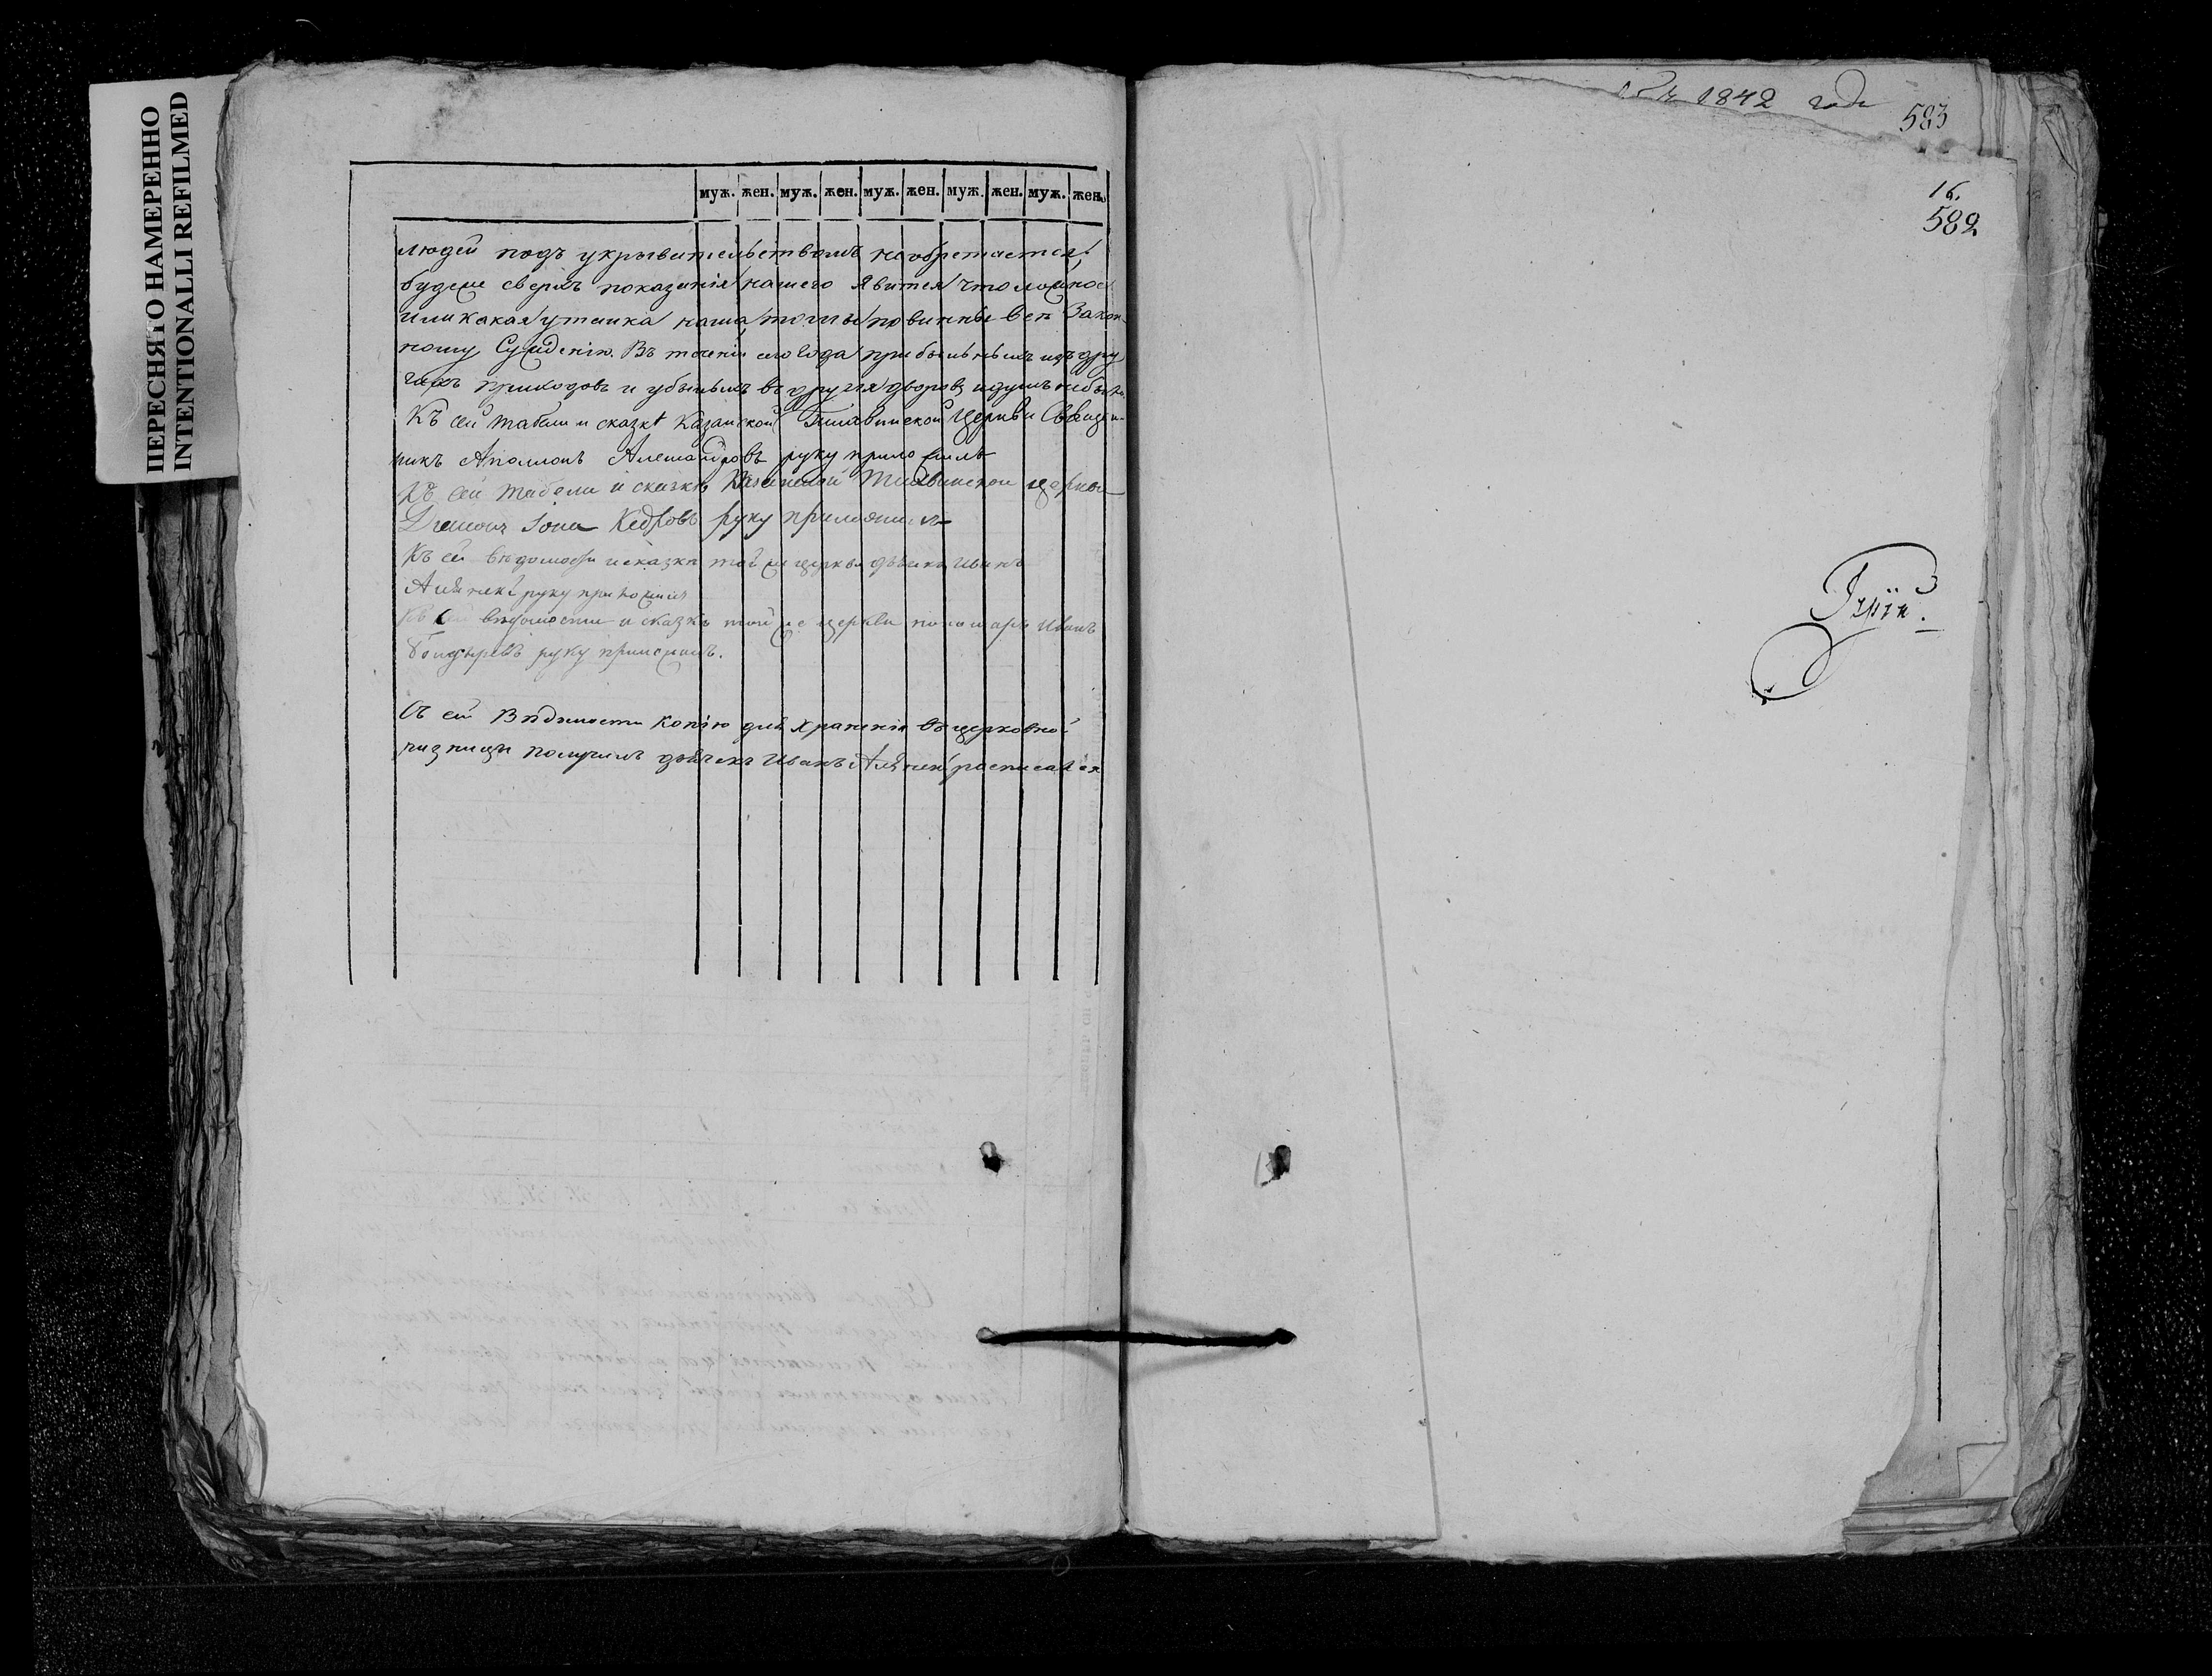 ПЕРЕСНЯТО НАМЕРЕННО
INTENTIONALLI REFILMED
муж. жен. муж. жен. муж. жен. муж. жен. муж. жен.
людей подъ укрывательствомъ необретается;
будеже сверхъ показанія нашего явится что ложное
или какая утайка наша, то мы повинны всѣ Закон-
ному Сужденію. Въ теченіи сего Года прибылыхъ изъ дру
гихъ приходовъ и убылыхъ въ другія дворовъ и душъ небыло.
Къ сей табели и сказкѣ Казанской Церкви Священ-
никъ Аполлонъ руку приложилъ
Къ сей табели и сказкѣ Казанской церкви
Діаконъ Іона Кедровъ руку приложилъ
Къ сей вѣдомости и сказкѣ той же церкви дьячекъ Иванъ
руку приложилъ
Къ сей вѣдомости и сказкѣ той же церкви пономарь Иванъ
руку приложилъ.
Съ сей Вѣдомости копію для храненія въ церковной
ризницѣ получилъ дьячекъ Иванъ росписался
1842 года
583
16.
582